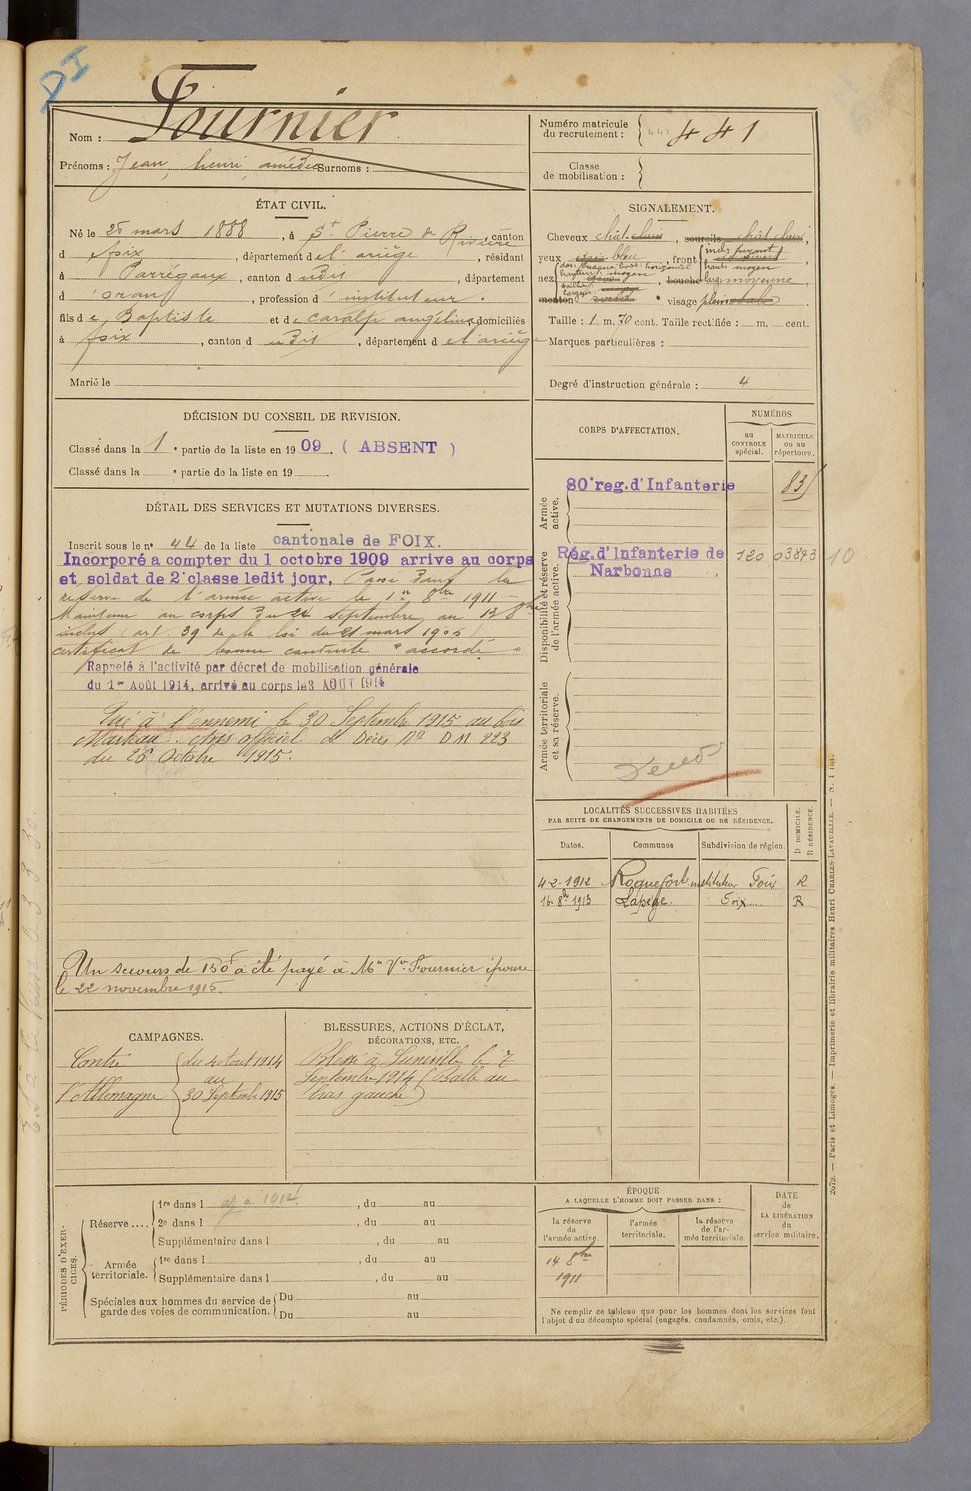 DI
Nom : Fournier
Prénoms : Jean, henri, amédée Surnoms :
Numéro matricule
du recrutement : 441
Classe
de mobilisation :
ÉTAT CIVIL.
Né le 25 mars 1888, à St Pierre de Rivière, canton
d foix, département de l'ariège, résidant
à Parrégaux, canton d udit, département
d'oran, profession d'instituteur.
fils de Baptiste et de Caralp angéline, domiciliés
à foix, canton d udit, département de l'ariège
Marié le
SIGNALEMENT.
Cheveux chât-clair, sourcils chât clair,
yeux bleu, front incl. fuyant
haut. moyen
nez dos busqué base horizontal
hauteur moyen
saillie
largeur
bouche moyenne
menton visage plein
Taille : 1 m. 70 cent. Taille rectifiée : m. cent.
Marques particulières :
Degré d'instruction générale : 4
DÉCISION DU CONSEIL DE REVISION.
Classé dans la 1e partie de la liste en 1909. ( ABSENT )
Classé dans la e partie de la liste en 19
DÉTAIL DES SERVICES ET MUTATIONS DIVERSES.
Inscrit sous le no 44 de la liste cantonale de FOIX.
Incorporé a compter du 1 octobre 1909 arrive au corps
et soldat de 2e classe ledit jour. Passé dans la
réserve de l'armée active le 1er 8bre 1911
Maintenu au corps du 24 septembre au 13 8bre
inclus (art. 39 de la loi du 21 mars 1905)
certificat de bonne conduite "accordé"
Rappelé à l'activité par décret de mobilisation générale
du 1er Août 1914, arrivé au corps le 3 AOUT 1914
Tué à l'ennemi le 30 Septembre 1915 au bois
Marteau. Avis officiel de Décès No D M 223
du 26 Octobre 1915.
Un secours de 150f a été payé à Me Vve Fournier épouse
le 22 novembre 1915.
CORPS D'AFFECTATION.
NUMÉROS
au
CONTROLE
spécial.
MATRICULE
ou au
répertoire.
Armée
active.
80e reg. d'Infanterie
83
Disponibilité et réserve
de l'armée active.
Rég. d'Infanterie de
Narbonne
120 03893 10
Armée territoriale
et sa réserve.
LOCALITÉS SUCCESSIVES HABITÉES
PAR SUITE DE CHANGEMENTS DE DOMICILE OU DE RÉSIDENCE.
Dates. Communes Subdivision de région. D DOMICILE. R RÉSIDENCE.
4-2-1912 Roquefort instituteur Foix R
16-8bre 1913 Lapège. Foix R
CAMPAGNES.
Contre
l'Allemagne
du 4 Aout 1914
au
30 Septembre 1915
BLESSURES, ACTIONS D'ÉCLAT,
DÉCORATIONS, ETC.
Blessé à Lunéville le 7
Septembre 1914 (Balle au
bras gauche)
PÉRIODES D'EXERCICES.
Réserve ....
1re dans l , du au
2e dans l , du au
Supplémentaire dans l , du au
Armée
territoriale.
1re dans l , du au
Supplémentaire dans l , du au
Spéciales aux hommes du service de
garde des voies de communication.
Du au
Du au
ÉPOQUE
A LAQUELLE L'HOMME DOIT PASSER DANS :
la réserve
de
l'armée active.
l'armée
territoriale.
la réserve
de l'ar-
mée territoriale.
DATE
de
LA LIBÉRATION
du
service militaire.
14 8bre
1911
Ne remplir ce tableau que pour les hommes dont les services font
l'objet d'un décompte spécial (engagés, condamnés, omis, etc.).
2079. — Paris et Limoges. — Imprimerie et librairie militaires Henri CHARLES-LAVAUZELLE. — N. 1